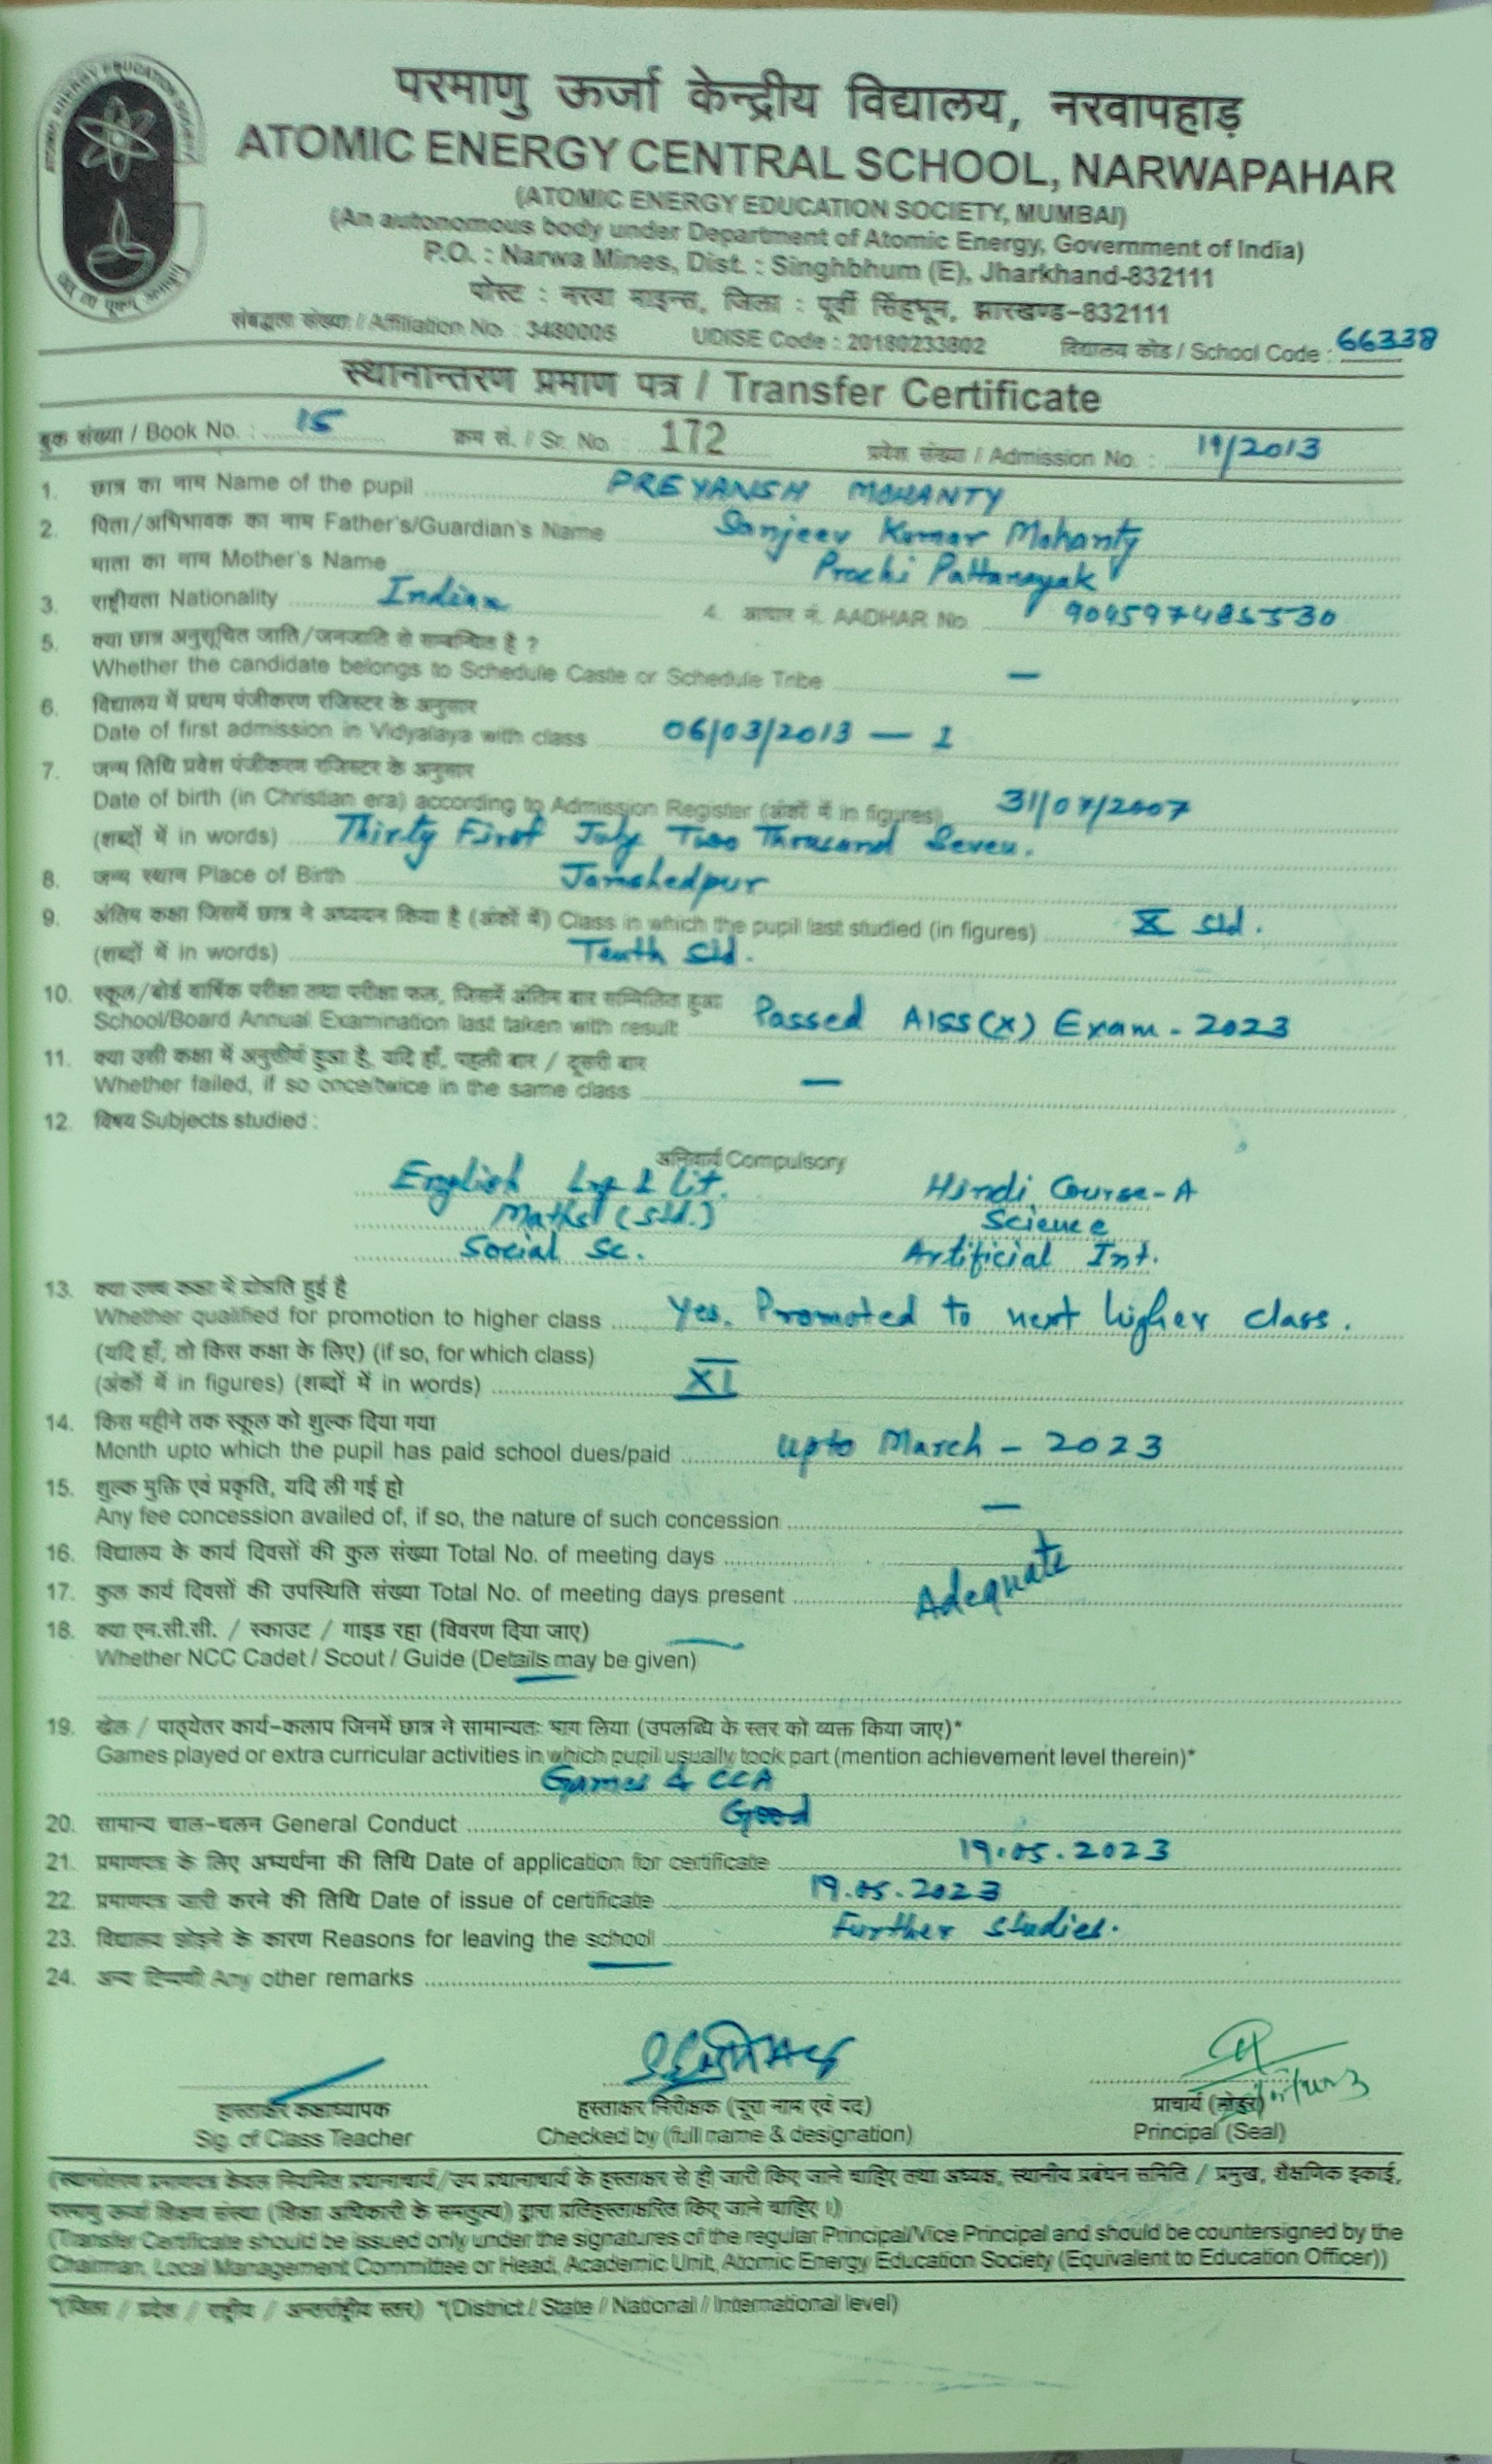 ATOMIC ENERGY EDUCATION SOCIETY
परमाणु ऊर्जा केन्द्रीय विद्यालय, नरवापहाड़
ATOMIC ENERGY CENTRAL SCHOOL, NARWAPAHAR
(ATOMIC ENERGY EDUCATION SOCIETY, MUMBAI)
(An autonomous body under Department of Atomic Energy, Government of India)
P.O. : Narwa Mines, Dist. : Singhbhum (E), Jharkhand-832111
पोस्ट : नरवा माइन्स, जिला : पूर्वी सिंहभूम, झारखण्ड-832111
संबद्धता संख्या / Affiliation No. : 3430005 UDISE Code : 20180233802 विद्यालय कोड / School Code : 66338
स्थानान्तरण प्रमाण पत्र / Transfer Certificate
बुक संख्या / Book No. : 15 क्रम सं. / Sr. No. 172 प्रवेश संख्या / Admission No. : 19/2013
1. छात्र का नाम Name of the pupil PREYANSH MOHANTY
2. पिता/अभिभावक का नाम Father's/Guardian's Name Sanjeev Kumar Mohanty
माता का नाम Mother's Name Prachi Pattanayak
3. राष्ट्रीयता Nationality Indian 4. आधार नं. AADHAR No.
5. क्या छात्र अनुसूचित जाति/जनजाति से सम्बन्धित है ?
Whether the candidate belongs to Schedule Caste or Schedule Tribe —
6. विद्यालय में प्रथम पंजीकरण रजिस्टर के अनुसार
Date of first admission in Vidyalaya with class 06/03/2013 — I
7. जन्म तिथि प्रवेश पंजीकरण रजिस्टर के अनुसार
Date of birth (in Christian era) according to Admission Register (अंकों में in figures) 31/07/2007
(शब्दों में in words) Thirty First July Two Thousand Seven.
8. जन्म स्थान Place of Birth Jamshedpur
9. अंतिम कक्षा जिसमें छात्र ने अध्ययन किया है (अंकों में) Class in which the pupil last studied (in figures) X Std.
(शब्दों में in words) Tenth Std.
10. स्कूल/बोर्ड वार्षिक परीक्षा तथा परीक्षा फल, जिसमें अंतिम बार सम्मिलित हुआ
School/Board Annual Examination last taken with result Passed AISS(X) Exam - 2023
11. क्या उसी कक्षा में अनुत्तीर्ण हुआ है, यदि हाँ, पहली बार / दूसरी बार
Whether failed, if so once/twice in the same class —
12. विषय Subjects studied :
अनिवार्य Compulsory
English Lng & Lit. Hindi Course-A
Maths (Std.) Science
Social Sc. Artificial Int.
13. क्या उच्च कक्षा में प्रोन्नति हुई है
Whether qualified for promotion to higher class Yes. Promoted to next higher class.
(यदि हाँ, तो किस कक्षा के लिए) (if so, for which class)
(अंकों में in figures) (शब्दों में in words) XI
14. किस महीने तक स्कूल को शुल्क दिया गया
Month upto which the pupil has paid school dues/paid upto March - 2023
15. शुल्क मुक्ति एवं प्रकृति, यदि ली गई हो
Any fee concession availed of, if so, the nature of such concession —
16. विद्यालय के कार्य दिवसों की कुल संख्या Total No. of meeting days
17. कुल कार्य दिवसों की उपस्थिति संख्या Total No. of meeting days present Adequate
18. क्या एन.सी.सी. / स्काउट / गाइड रहा (विवरण दिया जाए) —
Whether NCC Cadet / Scout / Guide (Details may be given)
19. खेल / पाठ्येतर कार्य-कलाप जिनमें छात्र ने सामान्यतः भाग लिया (उपलब्धि के स्तर को व्यक्त किया जाए)*
Games played or extra curricular activities in which pupil usually took part (mention achievement level therein)*
Games & CCA
20. सामान्य चाल-चलन General Conduct Good
21. प्रमाणपत्र के लिए अभ्यर्थना की तिथि Date of application for certificate 19.05.2023
22. प्रमाणपत्र जारी करने की तिथि Date of issue of certificate 19.05.2023
23. विद्यालय छोड़ने के कारण Reasons for leaving the school Further studies.
24. अन्य टिप्पणी Any other remarks
हस्ताक्षर कक्षाध्यापक हस्ताक्षर निरीक्षक (पूरा नाम एवं पद) प्राचार्य (मोहर)
Sig. of Class Teacher Checked by (full name & designation) Principal (Seal)
(स्थानांतरण प्रमाणपत्र केवल नियमित प्रधानाचार्य/उप प्रधानाचार्य के हस्ताक्षर से ही जारी किए जाने चाहिए तथा अध्यक्ष, स्थानीय प्रबंधन समिति / प्रमुख, शैक्षणिक इकाई,
परमाणु ऊर्जा शिक्षण संस्था (शिक्षा अधिकारी के समतुल्य) द्वारा प्रतिहस्ताक्षरित किए जाने चाहिए।)
(Transfer Certificate should be issued only under the signatures of the regular Principal/Vice Principal and should be countersigned by the
Chairman, Local Management Committee or Head, Academic Unit, Atomic Energy Education Society (Equivalent to Education Officer))
*(जिला / प्रदेश / राष्ट्रीय / अन्तर्राष्ट्रीय स्तर) *(District / State / National / International level)